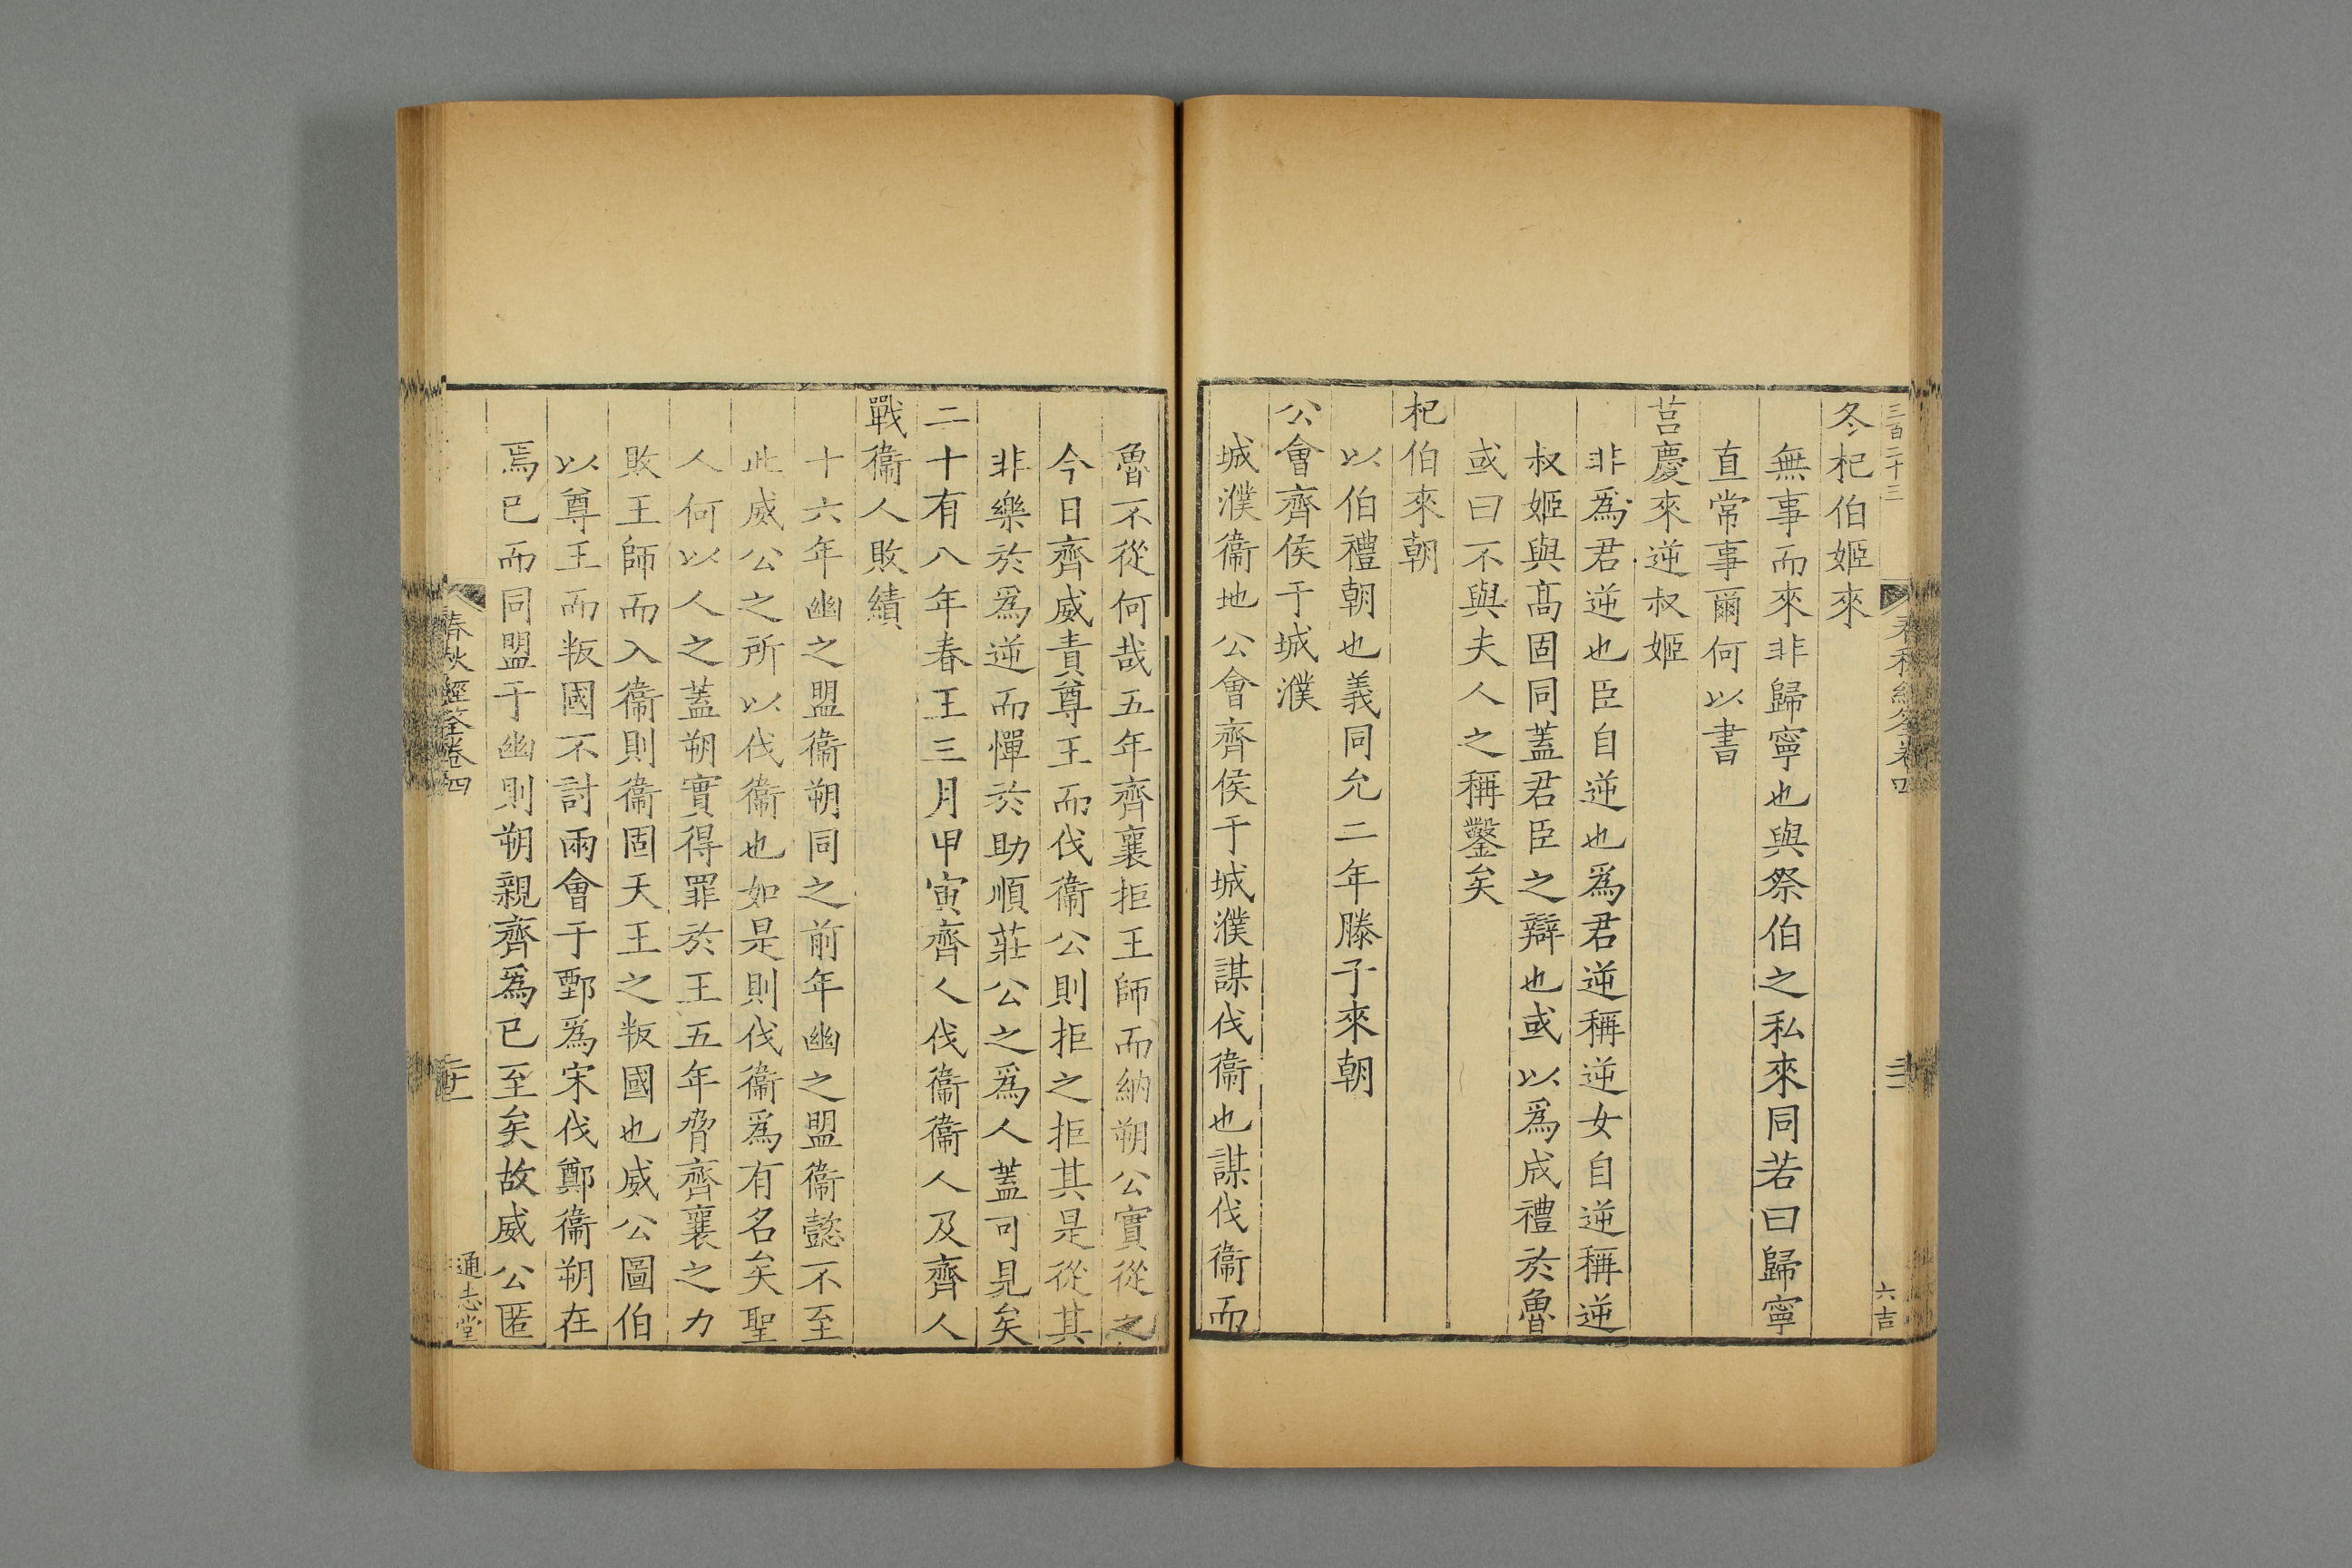 三百二十三
春秋經筌卷四
六吉
冬杞伯姬來
無事而來非歸寧也與祭伯之私來同若曰歸寧
直常事爾何以書
莒慶來逆叔姬
非爲君逆也臣自逆也爲君逆稱逆女自逆稱逆
叔姬與高固同蓋君臣之辯也或以爲成禮於魯
或曰不與夫人之稱鑿矣
杞伯來朝
以伯禮朝也義同允二年滕子來朝
公會齊侯于城濮
城濮衞地公會齊侯于城濮謀伐衞也謀伐衞而
魯不從何哉五年齊襄拒王師而納朔公實從之
今日齊威責尊王而伐衞公則拒之拒其是從其
非樂於爲逆而憚於助順莊公之爲人蓋可見矣
二十有八年春王三月甲寅齊人伐衞衞人及齊人
戰衞人敗績
十六年幽之盟衞朔同之前年幽之盟衞懿不至
此威公之所以伐衞也如是則伐衞爲有名矣聖
人何以人之蓋朔實得罪於王五年脅齊襄之力
敗王師而入衞則衞固天王之叛國也威公圖伯
以尊王而叛國不討兩會于鄄爲宋伐鄭衞朔在
焉已而同盟于幽則朔親齊爲已至矣故威公匿
春秋經筌卷四
通志堂